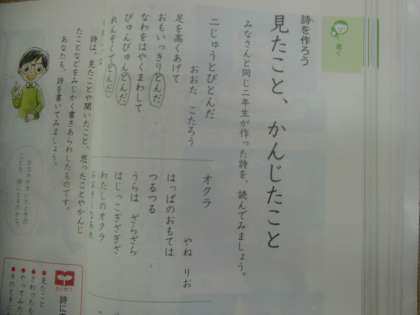 詩を作ろう
見たこと、かんじたこと
みなさんと同じ二年生が作った詩を、読んでみましょう。
二じゅうとびとんだ
おおた こたろう
足を高くあげて
おもいっきりとんだ
なわをはやくまわして
びゅんびゅんとんだ
オクラ
やね りお
はっぱのおもては
つるつる
うらは ざらざら
はじっこぎざぎざ
わたしのオクラ
詩は、見たことや聞いたこと、思ったことやかんじ
たことなどをみじかく書きあらわしたものです。
あなたも、詩を書いてみましょう。
詩に
●見たこと
●さわった
●やってみた